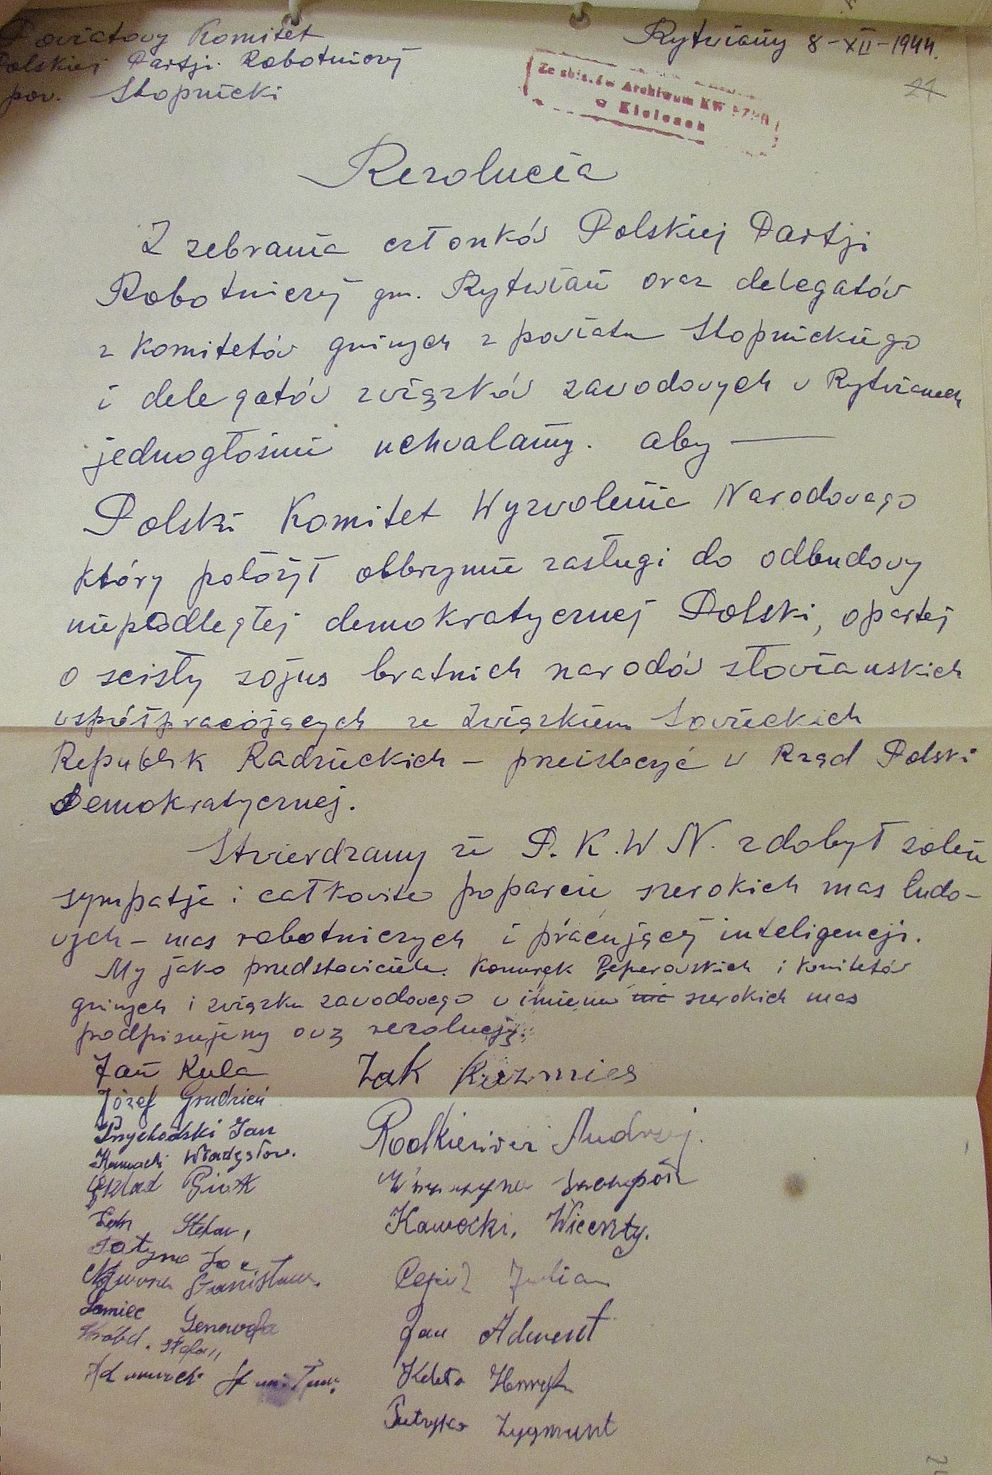 Powiatowy Komitet
Polskiej Partji Robotniczej
pow. Stopnicki
Rytwiany 8-XII-1944.
21
Ze zbiorów Archiwum KW PZPR
w Kielcach
Rezolucia
Z zebrania członków Polskiej Partji
Robotniczej gm. Rytwian oraz delegatów
z Komitetów gminych z powiatu Stopnickiego
i delegatów związków zawodowych w Rytwianach
jednogłośnie uchwalamy. aby —
Polski Komitet Wyzwolenia Narodowago
który położył olbrzymie zasługi do odbudowy
niepodległej demokratycznej Polski, opartej
o scisły sojus bratnich narodów słowianskich
współpracojących ze Związkiem Sowieckich
Republik Radzieckich – przeistoczyć w Rząd Polski
Demokratycznej.
Stwierdzamy że P.K.W.N. zdobył sobie
sympatje i całkowite poparcie szerokich mas ludo-
wych – mas robotniczych i pracującej inteligencji.
My jako przedstawiciele Komurek Peperowskich i Komitetów
gminych i związku zawodowego w imieniu szerokich mas
podpisujemy ową rezolucję.
Jan Kula
Józef Grudzień
Przychodski Jan
Władysław.
Piotr
Stefan,
Stanisław.
Genowefa
Wróbel. Stefan
Żak Kazimież
Rodkiewicz Andrzej.
Kawecki, Wicenty.
Julian
Jan Adwent
Henryk
Zygmunt